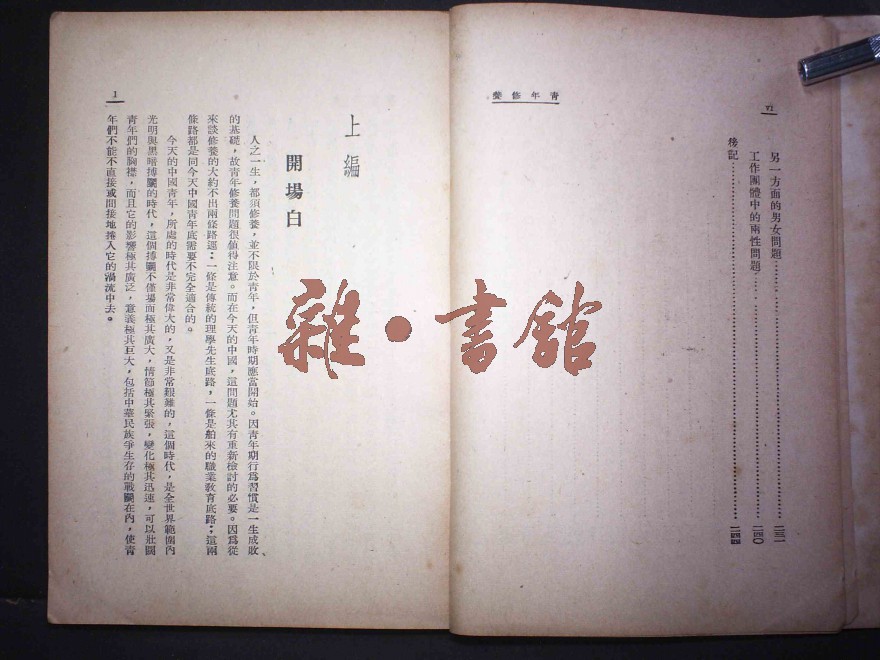 青年修養
VI
另一方面的男女問題……………………………二三一
工作團體中的兩性問題……………………………二四〇
後記……………………………二四四
1
上編
開場白
人之一生，都須修養，並不限於青年，但青年時期應當開始。因青年期行爲習慣是一生成敗
的基礎，故青年修養問題很值得注意。而在今天的中國，這問題尤其有重新檢討的必要。因爲從
來談修養的大約不出兩條路逕：一條是傳統的理學先生底路，一條是舶來的職業教育底路：這兩
條路都是同今天中國青年底需要不完全適合的。
今天的中國青年，所處的時代是非常偉大的，又是非常艱難的，這個時代，是全世界範圍內
光明與黑暗搏鬭的時代，這個搏鬭不僅場面極其廣大，情節極其緊張，變化極其迅速，可以壯闊
青年們的胸襟，而且它的影響極其廣泛，意義極其巨大，包括中華民族爭生存的戰鬭在內，使青
年們不能不直接或間接地捲入它的渦流中去。
雜·書館